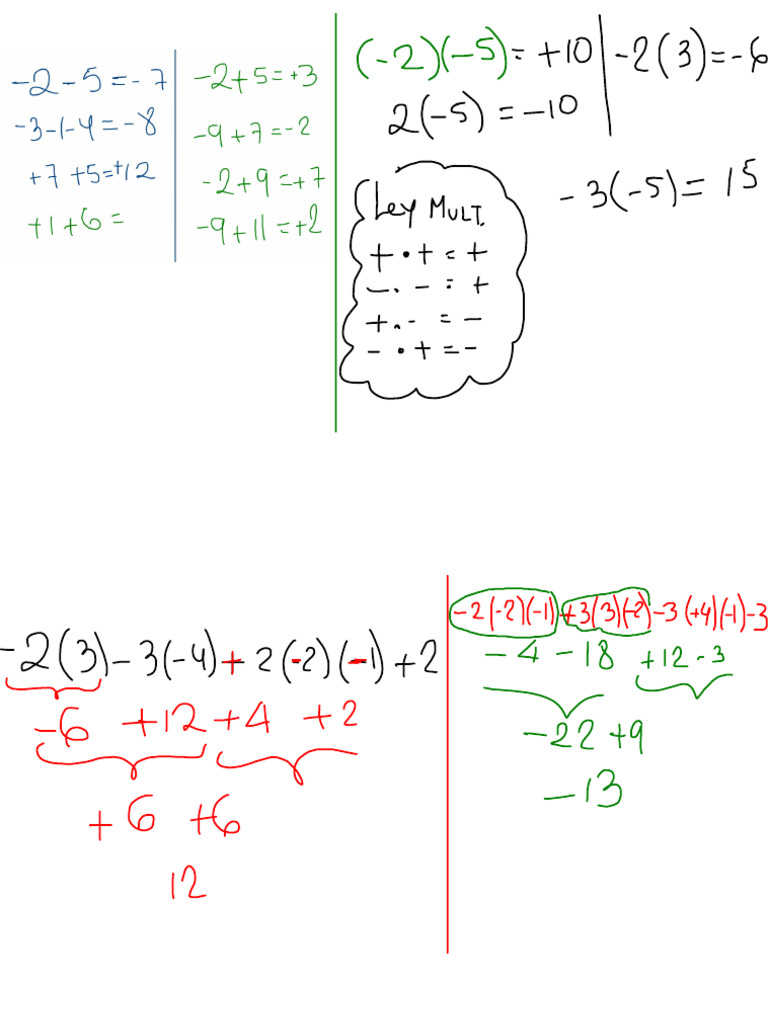 -2-5=-7
-3-1-4=-8
+7+5=+12
+1+6=
-2+5=+3
-9+7=-2
-2+9=+7
-9+11=+2
(-2)(-5)=+10
-2(3)=-6
2(-5)=-10
-3(-5)=15
Ley MULT.
+•+=+
-•-=+
+•-=-
-•+=-
-2(3)-3(-4)+2(-2)(-1)+2
-6 +12+4 +2
+6 +6
12
-2(-2)(-1)+3(3)(-2)-3(+4)(-1)-3
-4-18 +12-3
-22+9
-13